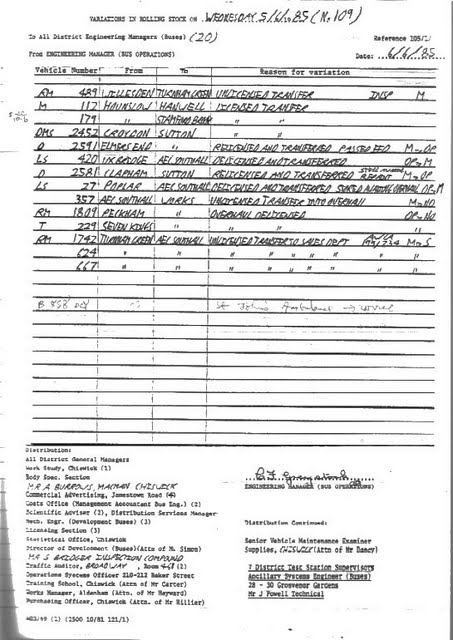 VARIATIONS IN ROLLING STOCK ON WEDNESDAY 5/6/1985 (No 109)
To All District Engineering Managers (Buses) (20) Reference 105/
From ENGINEERING MANAGER (BUS OPERATIONS) Date: 6/6/85
Vehicle Number From To Reason for variation
RM 489 WILLESDEN TURNHAM GREEN UNLICENSED TRANSFER INSP M
M 112 HOUNSLOW HANWELL LICENSED TRANSFER
179 " STAMFORD BROOK " "
DMS 2452 CROYDON SUTTON " "
D 2591 ELMERS END " RELICENSED AND TRANSFERRED PASSED FFD M→OP
LS 420 UXBRIDGE AEC SOUTHALL DELICENSED AND TRANSFERRED OP→M
D 2581 CLAPHAM SUTTON RELICENSED AND TRANSFERRED M→OP
LS 27 POPLAR AEC SOUTHALL DELICENSED AND TRANSFERRED OP→M
357 AEC SOUTHALL WORKS UNLICENSED TRANSFER INTO OVERHAUL M→NO
RM 1809 PECKHAM " OVERHAUL DELICENSED OP→NO
T 229 SEVEN KINGS " " "
RM 1742 TURNHAM GREEN AEC SOUTHALL UNLICENSED TRANSFER TO SALES DEPT M→S
624 " " " " " " "
667 " " " " " " "
St John's Ambulance
Distribution:
All District General Managers
Work Study, Chiswick (1)
Body Spec. Section
MR A BURROWS, CHISWICK
Commercial Advertising, Jamestown Road (4)
Costs Office (Management Accountant Bus Eng.) (2)
Scientific Adviser (2), Distribution Services Manager
Mech. Engr. (Development Buses) (1)
Licensing Section (3)
Statistical Office, Chiswick
Director of Development (Buses)(Attn of M. Simon)
MR S BRIDGER INSPECTION COMPOUND
Traffic Auditor, BROADWAY, Room (2)
Operations Systems Officer 210-212 Baker Street
Training School, Chiswick (Attn of Mr Carter)
Works Manager, Aldenham (Attn of Mr Hayward)
Purchasing Officer, Chiswick (Attn. of Mr Hillier)
ENGINEERING MANAGER (BUS OPERATIONS)
Distribution Continued:
Senior Vehicle Maintenance Examiner
Supplies, CHISWICK (Attn of Mr Dancy)
7 District Test Station Supervisors
Ancillary Systems Engineer (Buses)
28 - 30 Grosvenor Gardens
Mr J Powell Technical
(1) (2500 10/81 121/1)